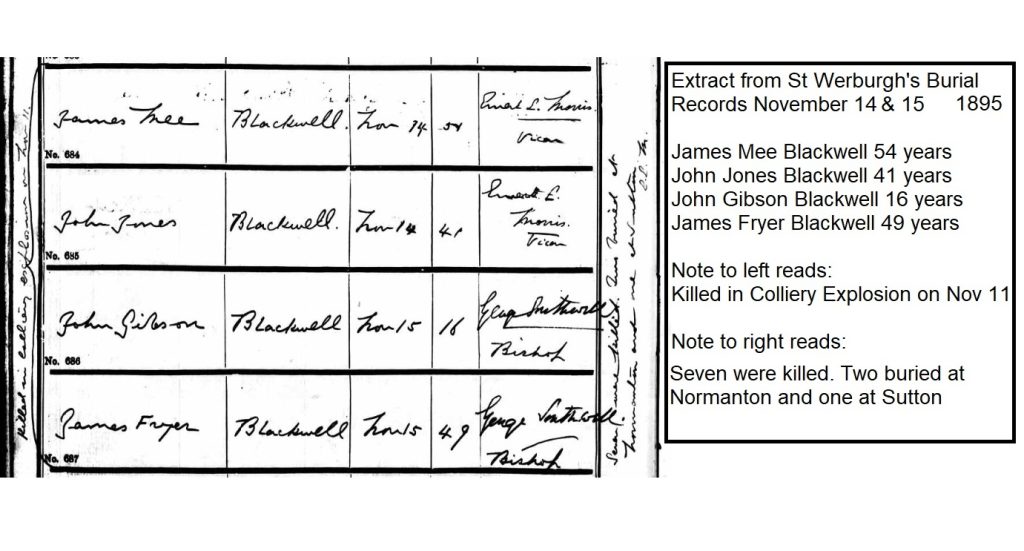 Killed in colliery explosion on Nov 11
James Mee Blackwell. Nov 14 54 Ernest E. Morris. Vicar
No. 684
John Jones Blackwell. Nov 14 41 Ernest E. Morris. Vicar
No. 685
John Gibson Blackwell Nov 15 16 George Southwell Bishop
No. 686
James Fryer Blackwell Nov 15 49 George Southwell Bishop
No. 687
Seven were killed. Two buried at
Normanton and one at Sutton
Extract from St Werburgh's Burial
Records November 14 & 15 1895
James Mee Blackwell 54 years
John Jones Blackwell 41 years
John Gibson Blackwell 16 years
James Fryer Blackwell 49 years
Note to left reads:
Killed in Colliery Explosion on Nov 11
Note to right reads:
Seven were killed. Two buried at
Normanton and one at Sutton